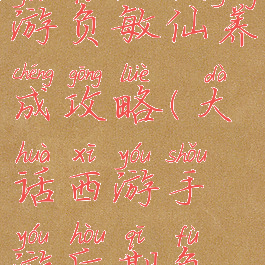 游负敏仙养
chéng gōng lüè dà
成攻略(大
huà xī yóu shǒu
话西游手
yóu hòu qī fù